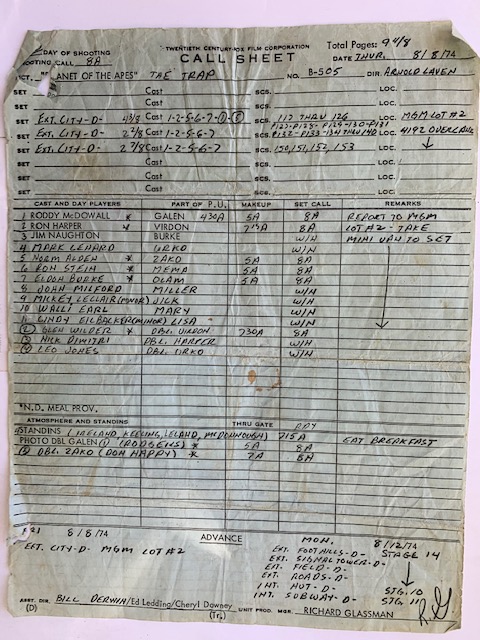 DAY OF SHOOTING
TWENTIETH CENTURY-FOX FILM CORPORATION
Total Pages: 9 4/8
SHOOTING CALL 8A
CALL SHEET
DATE THUR. 8/8/74
PICT. "PLANET OF THE APES" "THE TRAP"
NO. B-505
DIR. ARNOLD LAVEN
SET Cast SCS. LOC.
SET Cast SCS. LOC.
SET EXT. CITY-D- 4 3/8 Cast 1-2-5-6-7 SCS. 117 THRU 126 LOC. MGM LOT #2
P127-P128-P129-130-P131
SET EXT. CITY-D- 2 3/8 Cast 1-2-5-6-7 SCS. P132-P133-134 THRU 140 LOC. 4192 OVERLAND
SET EXT. CITY-D- 2 7/8 Cast 1-2-5-6-7 SCS. 150,151,152,153 LOC.
SET Cast SCS. LOC.
SET Cast SCS. LOC.
CAST AND DAY PLAYERS PART OF P.U. MAKEUP SET CALL REMARKS
1 RODDY McDOWALL * GALEN 430A 5A 8A REPORT TO MGM
2 RON HARPER * VIRDON 715A 8A LOT #2 - TAKE
3 JIM NAUGHTON BURKE W/N MINI VAN TO SET
4 MARK LENARD URKO W/N
5 NORM ALDEN * ZAKO 5A 8A
6 RON STEIN * MEMA 5A 8A
7 ELDON BURKE * OLAM 5A 8A
8 JOHN MILFORD MILLER W/N
9 MICKEY LECLAIR (MINOR) JICK W/N
10 WALLI EARL MARY W/N
11 CINDY EILBACKER (MINOR) LISA W/N
2 GLEN WILDER * DBL. VIRDON 730A 8A
3 NICK DIMITRI DBL. HARPER W/N
4 LEO JONES DBL. URKO W/N
*N.D. MEAL PROV.
ATMOSPHERE AND STANDINS THRU GATE RDY
4 STANDINS (IRELAND, KEELING, LELAND, McDONNOUGH) 715A
PHOTO DBL GALEN (1) (RODGERS) * 5A 8A EAT BREAKFAST
5 DBL. ZAKO (DON HAPPY) * 7A 8A
8/8/74
ADVANCE
MON. 8/12/74
EXT. CITY-D- MGM LOT #2
EXT. FOOTHILLS-D- STAGE 14
EXT. SIGNAL TOWER-D-
EXT. FIELD-D-
EXT. ROADS-D-
INT. HUT-D- STG. 10
INT. SUBWAY-D- STG. 11
ASST. DIR. BILL DERWIN/Ed Ledding/Cheryl Downey
(D) (Tr.)
UNIT PROD. MGR. RICHARD GLASSMAN
R.G